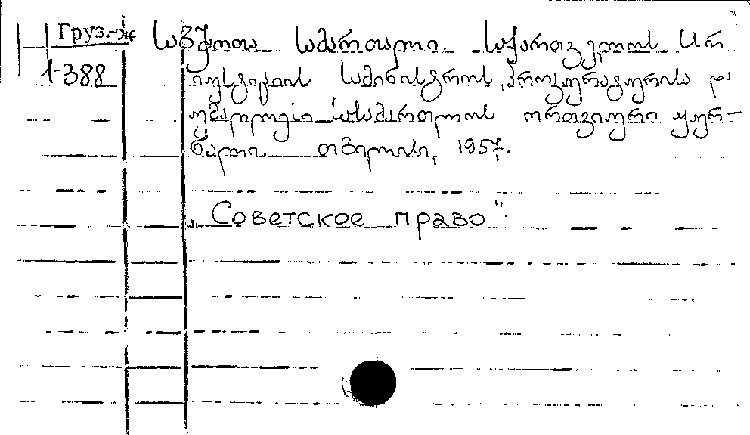 Груз.-ж
1-388
საბჭოთა სამართალი საქართველოს სსრ
იუსტიციის სამინისტროს, პროკურატურისა და
უმაღლესი სასამართლოს ორთვიური ჟურ-
ნალი თბილისი, 1957.
„Советское право".